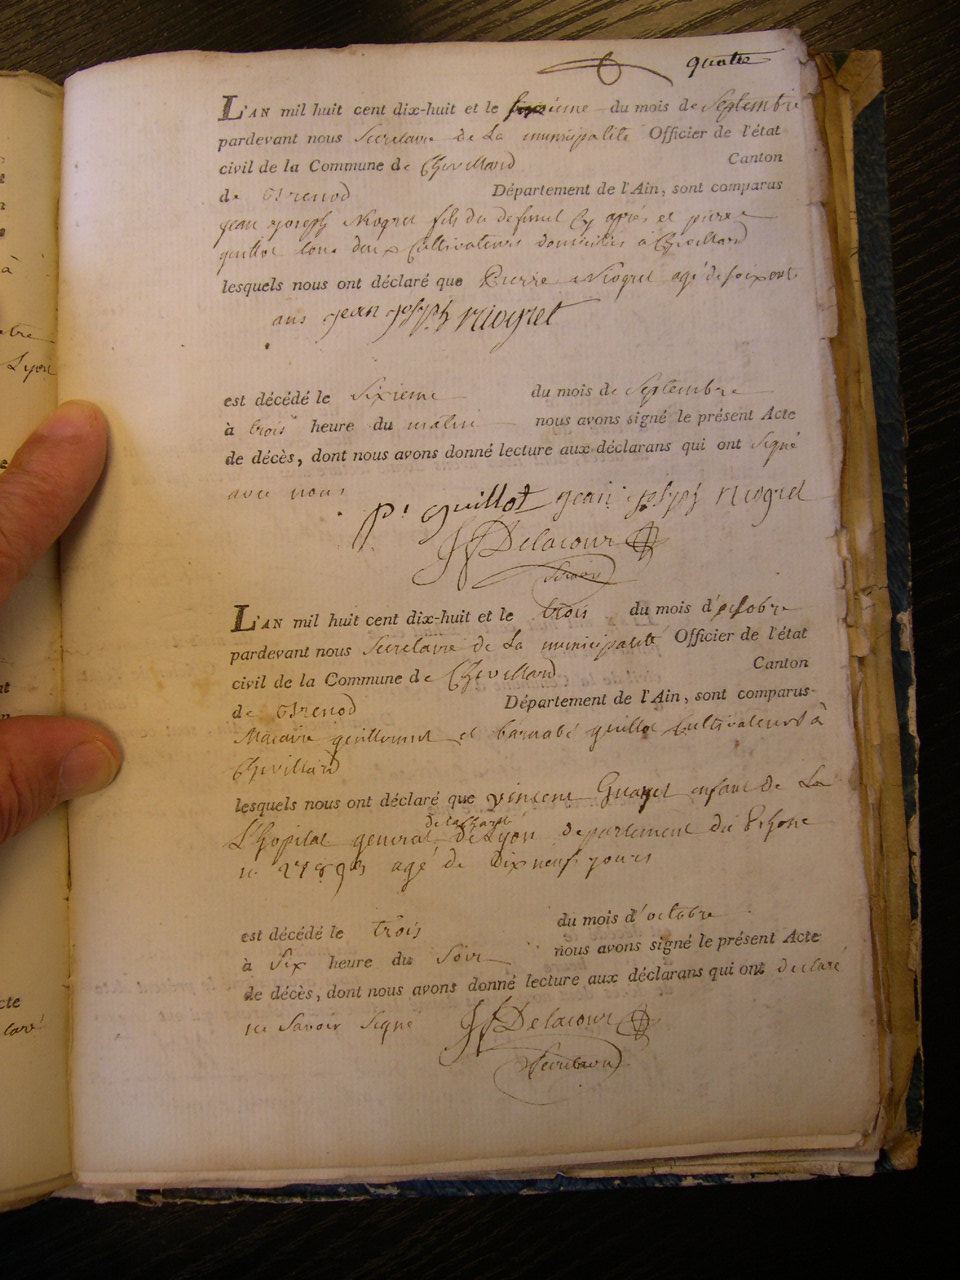 quatre
L'AN mil huit cent dix-huit et le sixieme du mois de Septembre
pardevant nous Secretaire de La municipalité Officier de l'état
civil de la Commune de Chevillard Canton
de Brenod Département de l'Ain, sont comparus
jean joseph Niogret fils du defunt Cy après et pierre
guillot tous deux Cultivateurs domiciliés à Chevillard
lesquels nous ont déclaré que Pierre Niogret agé de soixante
ans jean joseph niogret
est décédé le Sixieme du mois de Septembre
à trois heure du matin nous avons signé le présent Acte
de décès, dont nous avons donné lecture aux déclarans qui ont Signé
avec nous
pr guillot jean joseph niogret
Delacour
L'AN mil huit cent dix-huit et le trois du mois d'octobre
pardevant nous Secretaire de La municipalité Officier de l'état
civil de la Commune de Chevillard Canton
de Brenod Département de l'Ain, sont comparus
Macaire guillermet et barnabé guillot Cultivateurs à
Chevillard
lesquels nous ont déclaré que vincent enfant de La
de la charité
L'hopital general de Lyon departement du Rhone
agé de Dix neuf jours
est décédé le trois du mois d'octobre
à Six heure du Soir nous avons signé le présent Acte
de décès, dont nous avons donné lecture aux déclarans qui ont declaré
ne Savoir Signé Delacour